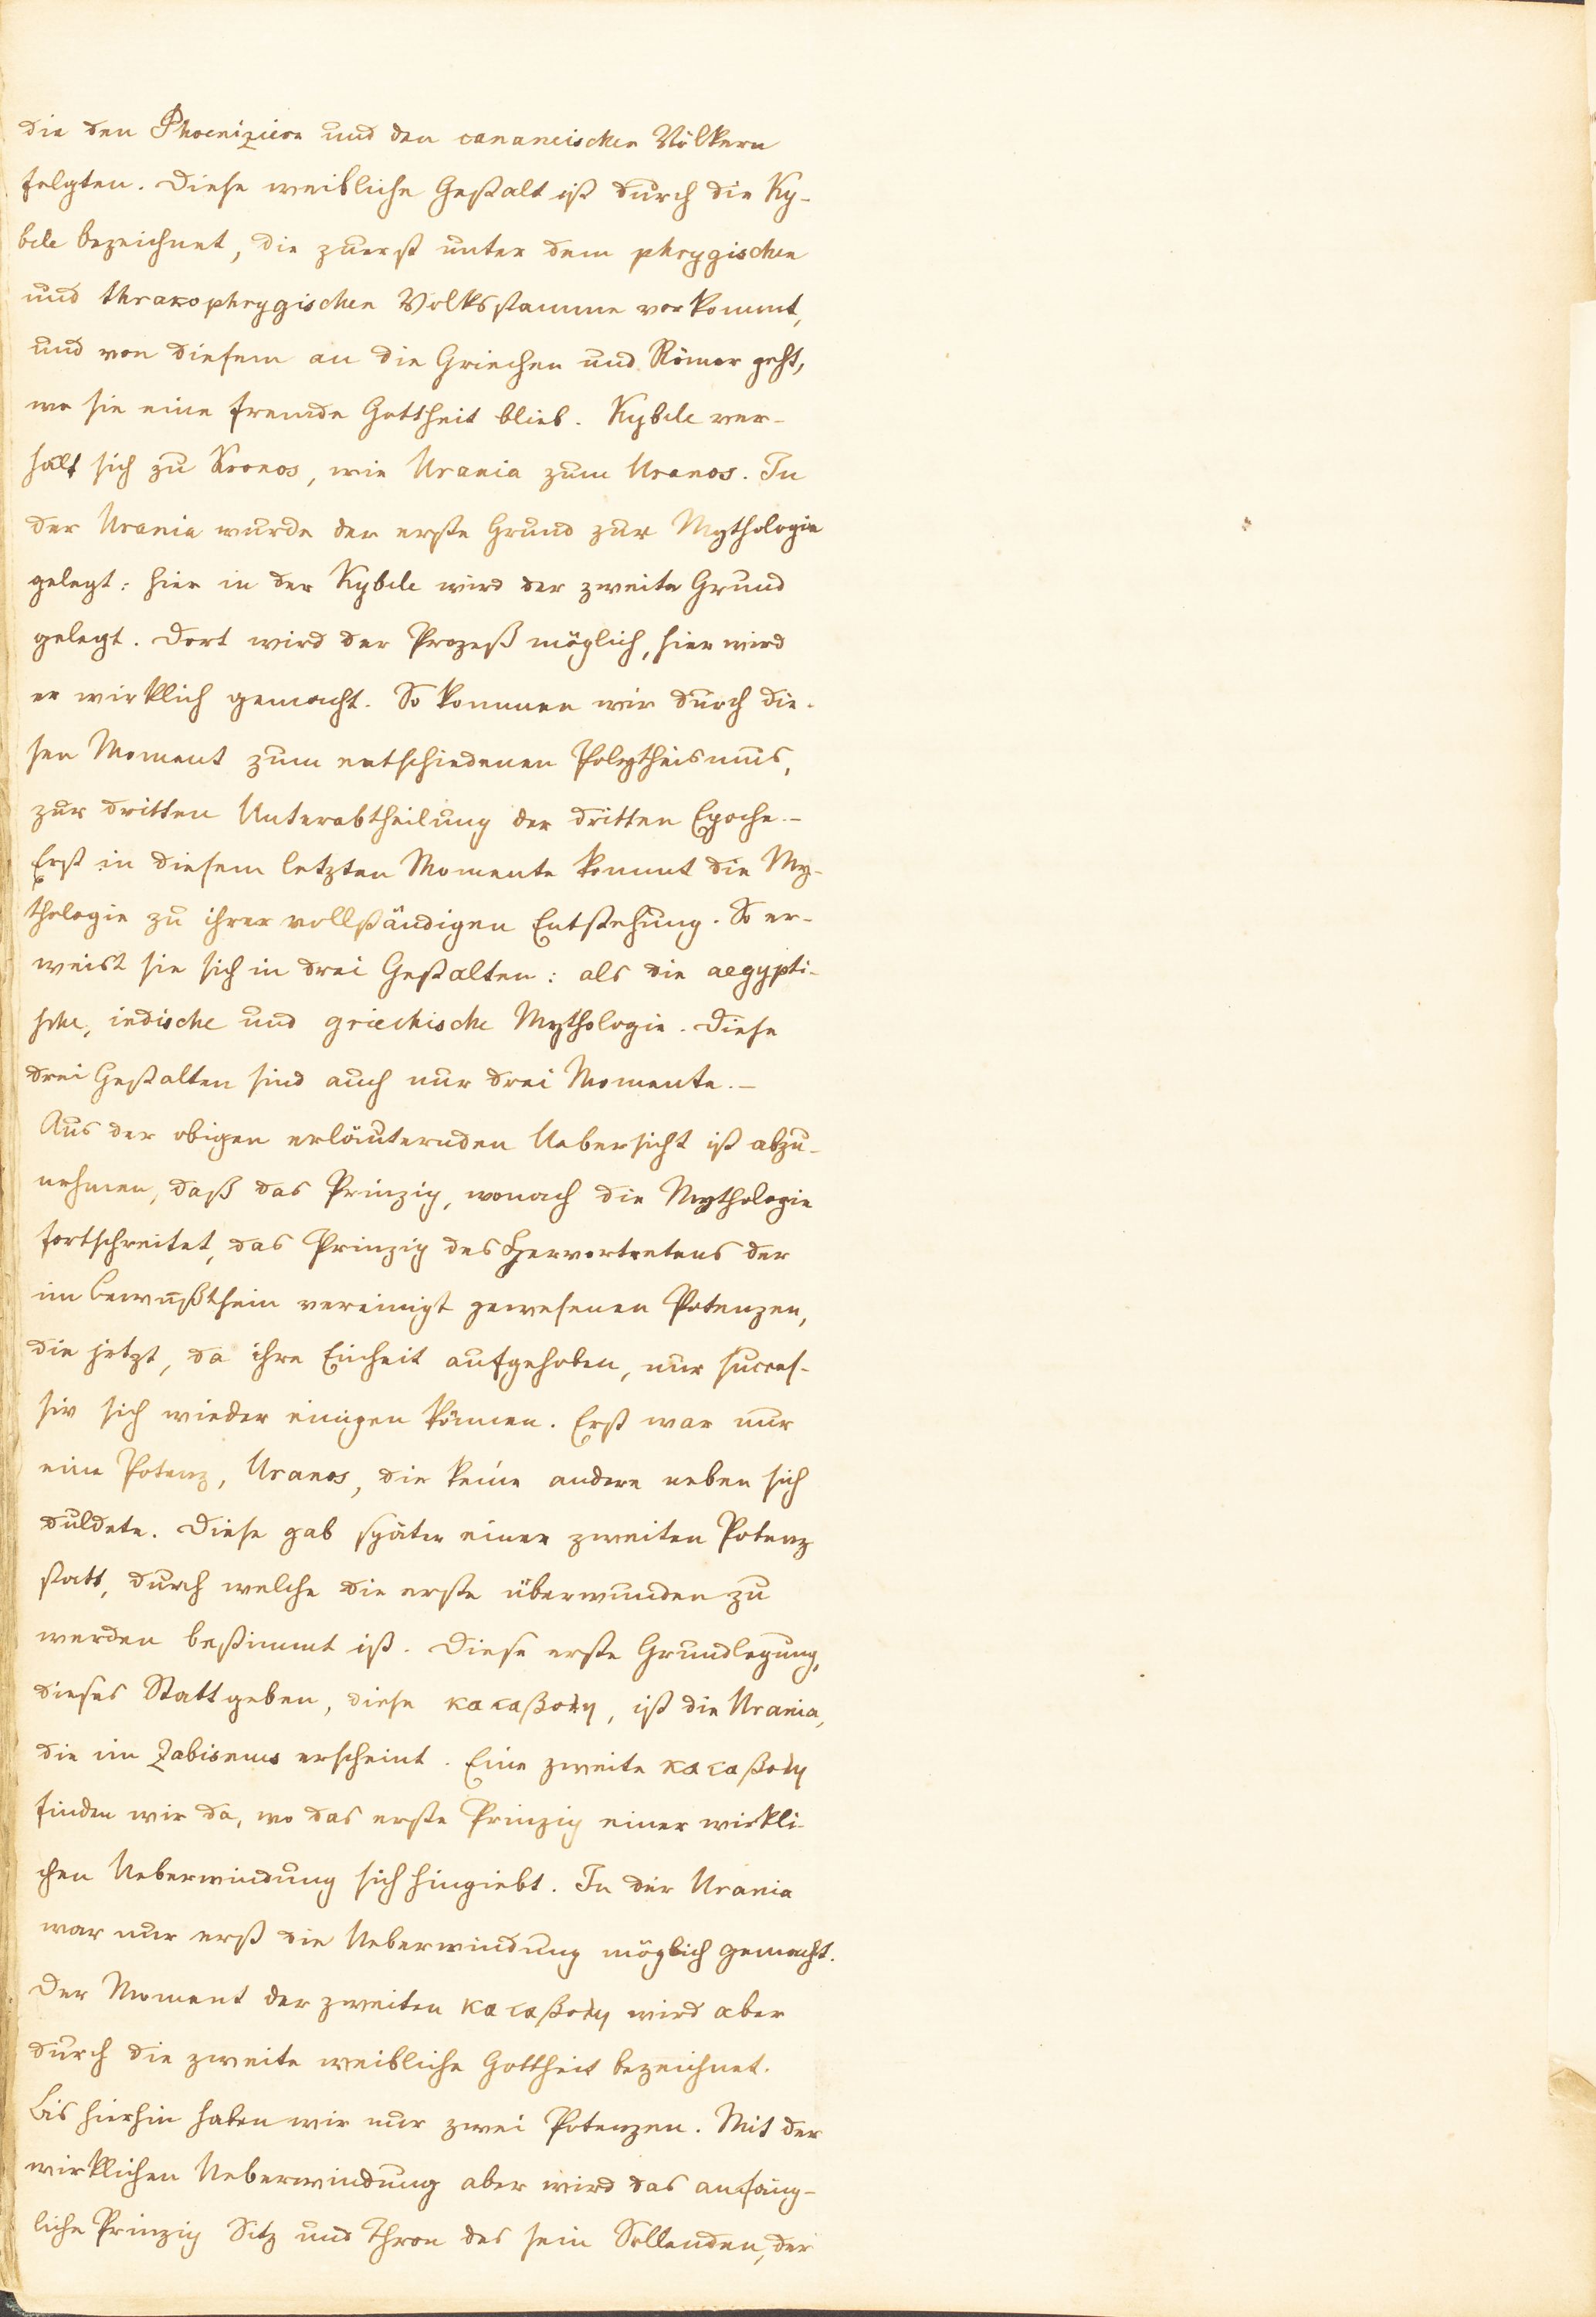 die den Phoeniziern und den cananeischen Völkern
folgten. Diese weibliche Gestalt ist durch die Ky-
bele bezeichnet, die zuerst unter dem phrygischen
und thrakophrygischen Volksstamme vorkommt,
und von diesem an die Griechen und Römer geht,
wo sie eine fremde Gottheit blieb. Kybele ver-
hält sich zu Kronos, wie Urania zum Uranos. In
der Urania wurde der erste Grund zur Mythologie
gelegt: hier in der Kybele wird der zweite Grund
gelegt. Dort wird der Prozeß möglich, hier wird
er wirklich gemacht. So kommen wir durch die-
sen Moment zum entschiedenen Polytheismus,
zur dritten Unterabtheilung der dritten Epoche.–
Erst in diesem letzten Momente kommt die My-
thologie zu ihrer vollständigen Entstehung. So er-
weist sie sich in drei Gestalten: als die aegypti-
sche, indische und griechische Mythologie. Diese
drei Gestalten sind auch nur drei Momente.–
Aus der obigen erläuternden Uebersicht ist abzu-
nehmen, daß das Prinzip, wonach die Mythologie
fortschreitet, das Prinzip des Hervortretens der
im Bewußtsein vereinigt gewesenen Potenzen,
die jetzt, da ihre Einheit aufgehoben, nur succes-
siv sich wieder einigen können. Erst war nur
eine Potenz, Uranos, die keine andere neben sich
duldete. Diese gab später einer zweiten Potenz
statt, durch welche die erste überwunden zu
werden bestimmt ist. Diese erste Grundlegung,
dieses Stattgeben, diese καταβολη, ist die Urania,
die im Zabismus erscheint. Eine zweite καταβολη
finden wir da, wo das erste Prinzip einer wirkli-
chen Ueberwindung sich hingiebt. In der Urania
war nur erst die Ueberwindung möglich gemacht.
Der Moment der zweiten καταβολη wird aber
durch die zweite weibliche Gottheit bezeichnet.
Bis hierhin haben wir nur zwei Potenzen. Mit der
wirklichen Ueberwindung aber wird das anfäng-
liche Prinzip Sitz und Thron des sein Sollenden, der